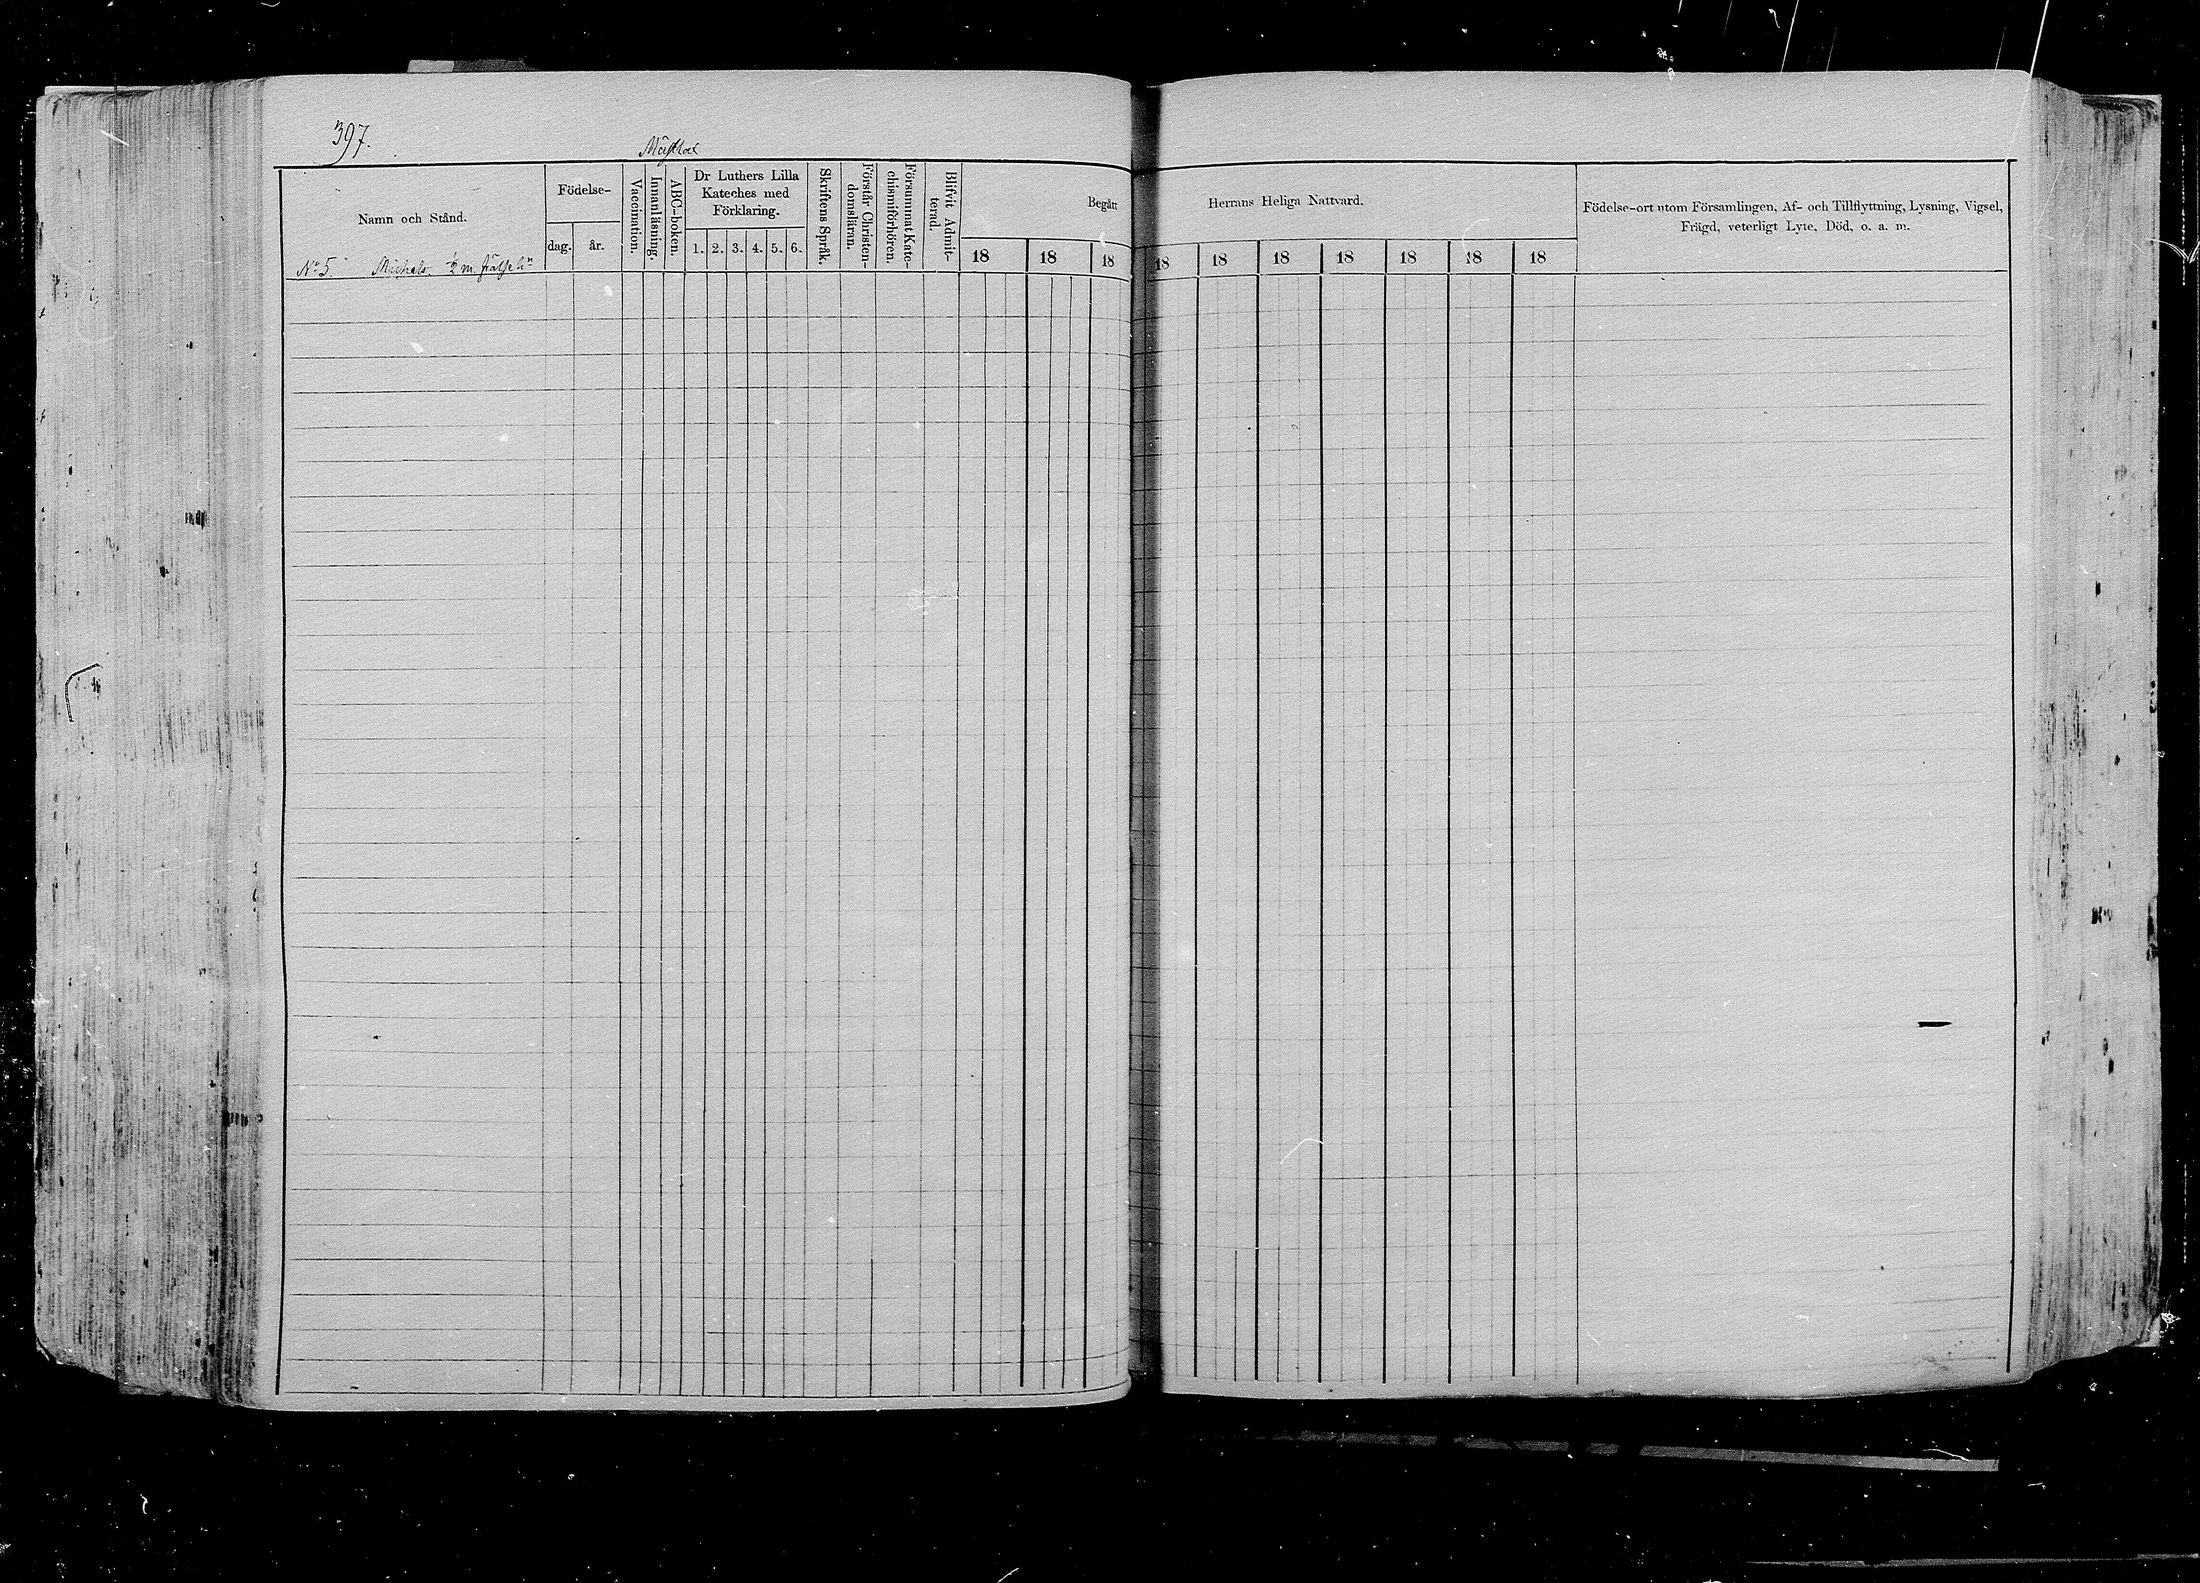 397.
Namn och Stånd.
Födelse-
dag. år.
Vaccination.
Innanläsning.
ABC-boken.
Dr Luthers Lilla
Kateches med
Förklaring.
1. 2. 3. 4. 5. 6.
Skriftens Språk.
Förstår Christen-
domsläran.
Försummat Kate-
chismiförhören.
Blifvit Admit-
terad.
Begått
18 18 18
Herrans Heliga Nattvard.
18 18 18 18 18 18 18
Födelse-ort utom Församlingen, Af- och Tillflyttning, Lysning, Vigsel,
Frägd, veterligt Lyte, Död, o. a. m.
No 5 Michels ½ m.